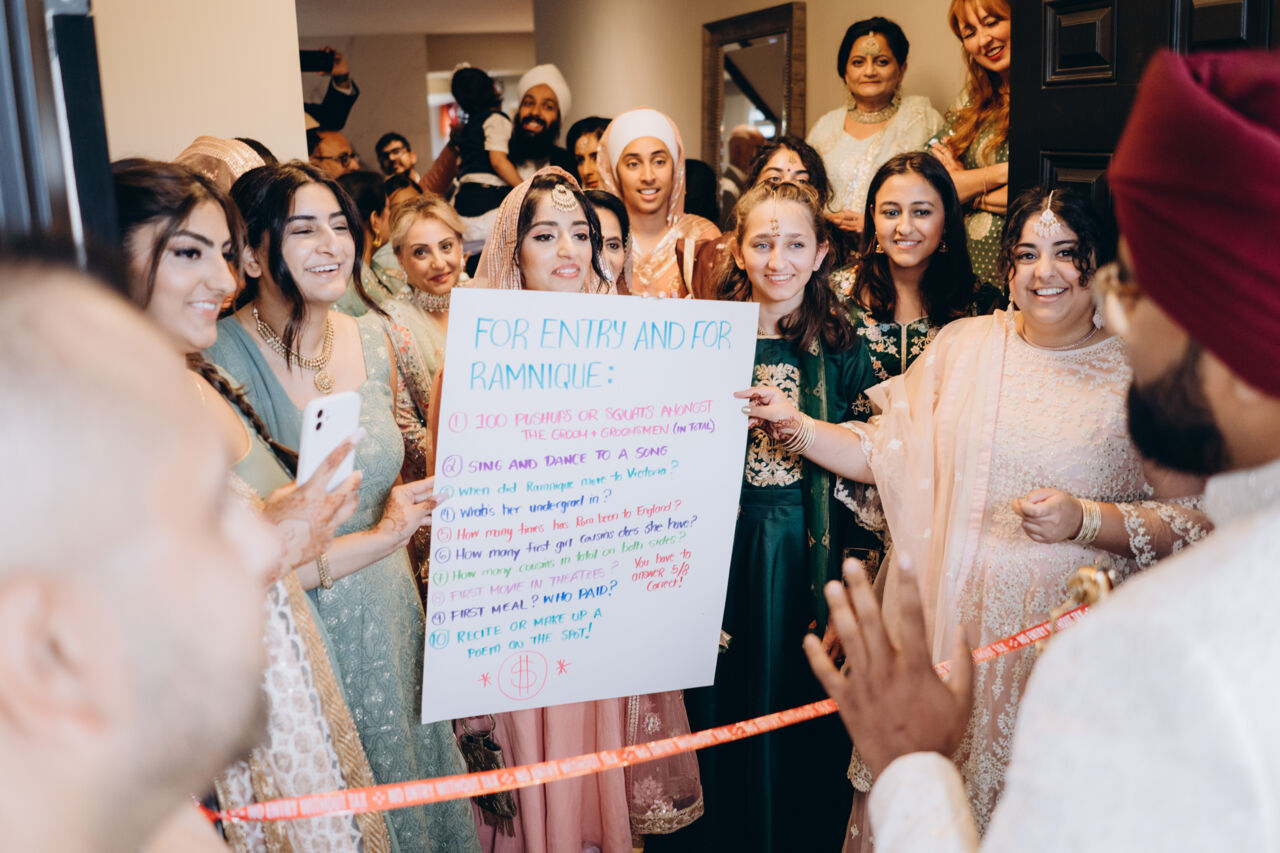 FOR ENTRY AND FOR
RAMNIQUE:
① 100 PUSHUPS OR SQUATS AMONGST
THE GROOM + GROOMSMEN (IN TOTAL)
② SING AND DANCE TO A SONG
③ When did Ramnique move to Victoria?
④ What's her undergrad in?
⑤ How many times has Ram been to England?
⑥ How many first girl cousins does she have?
⑦ How many cousins in total on both sides?
⑧ FIRST MOVIE IN THEATRES?
⑨ FIRST MEAL? WHO PAID?
⑩ RECITE OR MAKE UP A
POEM ON THE SPOT!
You have to
answer 5/8
correct!
* $ *
NO ENTRY WITHOUT TAX NO ENTRY WITHOUT TAX